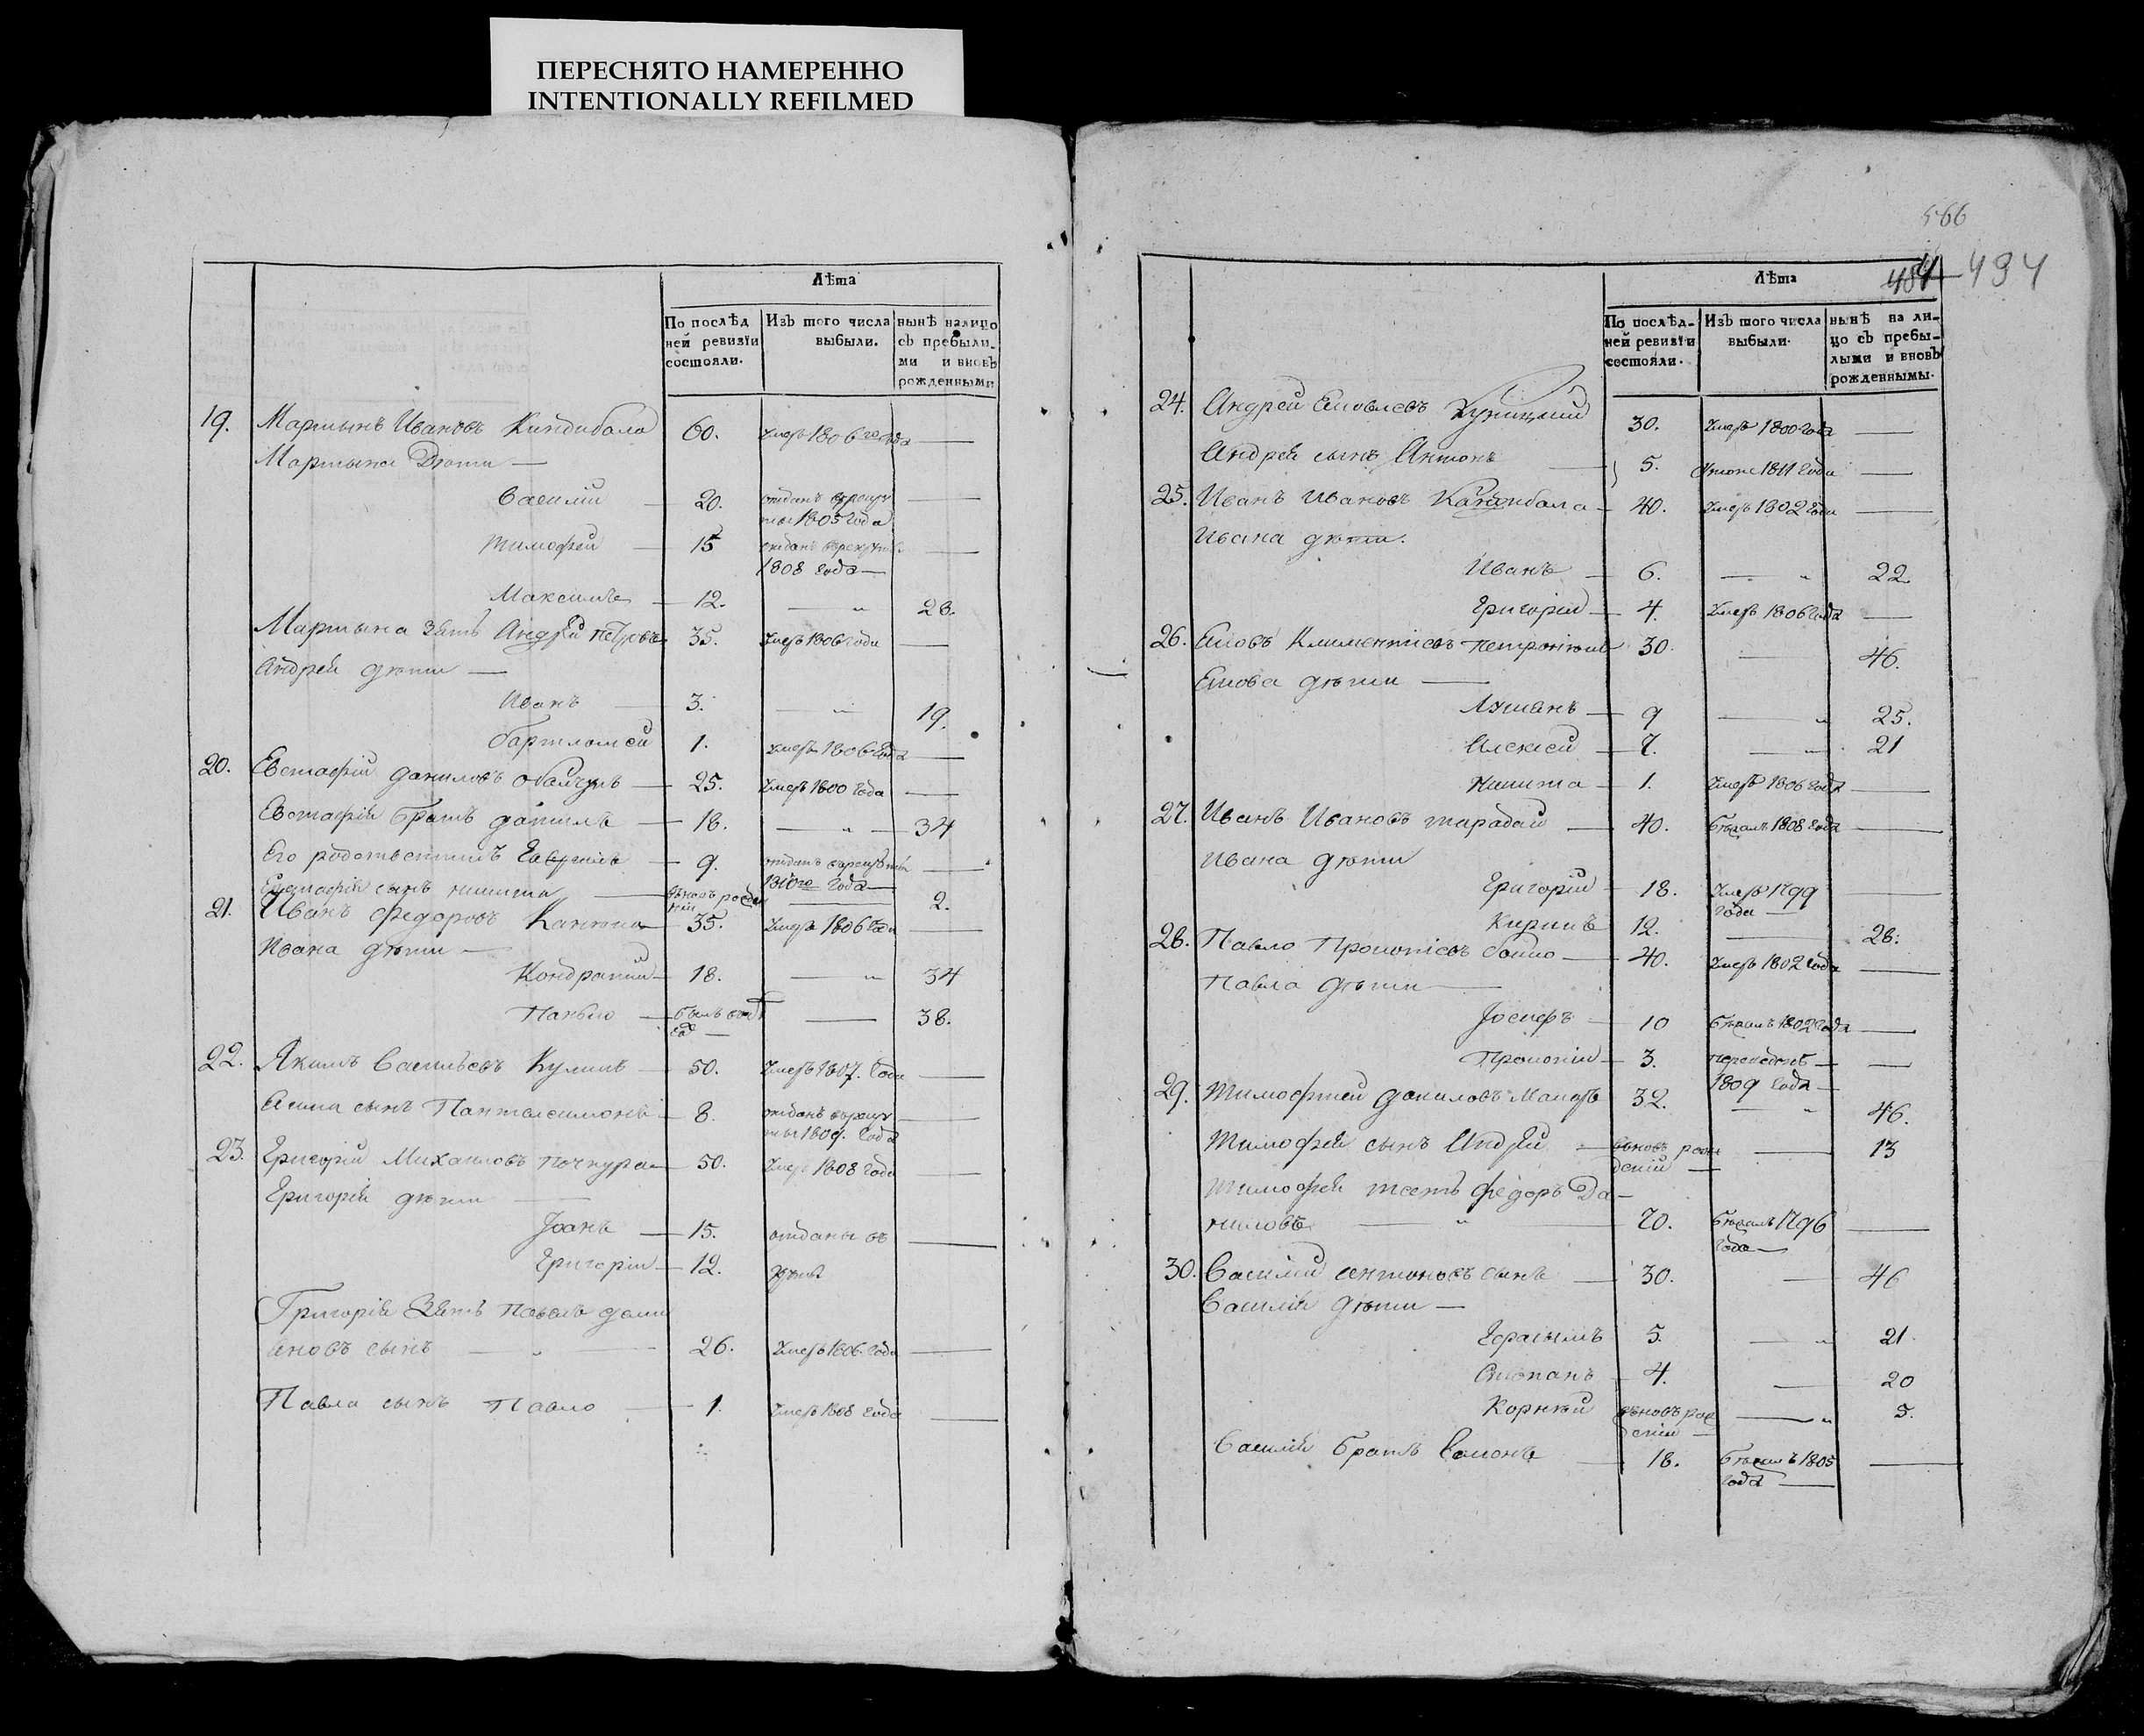 ПЕРЕСНЯТО НАМЕРЕННО
INTENTIONALLY REFILMED
Лѣта
По послѣд
ней ревизїи
состояли.
Изъ того числа
выбыли.
нынѣ налицо
съ пребыли-
ми и вновь
рожденными
19. Мартынъ Ивановъ Киндибала 60. Умеръ 1806 года —
Мартына Дѣти —
Василий — 20. отданъ врекру —
ты 1805 года
Тимофей — 15 отданъ врекруты —
1808 года —
Максимъ — 12. — „ 28.
Мартына Зять Андрей Петровъ 35. Умеръ 1806 года —
Андрея дѣти —
Иванъ — 3. — „ 19.
Вартломей 1. умеръ 1806 года —
20. Евстафий Даниловъ — 25. Умеръ 1800 года —
Евстафия братъ Данилъ — 18. — „ — 34
Его родственникъ Гаврило — 9. отданъ врекруты —
1810го года —
Евстафия сынъ Никита — вновь рожден — 2.
21. Иванъ Федоровъ — 35. Умеръ 1806 года —
Ивана дѣти —
Кондратий — 18. — „ 34
Панько — — 38.
22. Якимъ Васильевъ Куликъ — 50. Умеръ 1807. года —
сынъ Панталеимонъ — 8. отданъ врекру —
ты 1809. года
23. Григорий Михайловъ Почкура — 50. Умеръ 1808 года —
Григория дѣти —
Іоанъ — 15. отданы въ —
Григорий — 12.
Григория Зять Павелъ Деми
яновъ сынъ — „ — 26. Умеръ 1806. года —
Павла сынъ Павло — 1. Умеръ 1808 года —
566
484 494
Лѣта
По послѣд-
ней ревизїи
состояли.
Изъ того числа
выбыли.
нынѣ на ли-
цо съ пребы-
лыми и вновь
рожденнымы.
24. Андрей Яковлевъ 30. Умеръ 1800 года —
Андрея сынъ Антонъ — 5. 1811 года —
25. Иванъ Ивановъ Кандибала — 40. Умеръ 1802 года —
Ивана дѣти.
Иванъ — 6. — „ 22
Григорий — 4. Умеръ 1806 года —
26. Яковъ Климентиевъ 30. — 46.
Якова дѣти —
Лукианъ — 9 — „ 25.
Алексей — 7. — „ 21
Никита — 1. Умеръ 1806 года —
27. Иванъ Ивановъ Тарабай — 40. бѣжалъ 1808 года —
Ивана дѣти
Григорий — 18. Умеръ 1799 —
года —
Кирикъ 12. — 28.
28. Павло Прокопиевъ Бойко — 40. Умеръ 1802 года —
Павла дѣти —
Іосифъ — 10 бѣжалъ 1802 года —
Прокопий — 3. переведенъ — —
1809 года —
29. Тимофей Даниловъ 32. — „ 46.
Тимофея сынъ Андрей — вновь рож — 13
дений —
Тимофея тесть Федоръ Да-
ниловъ — „ — 70. бѣжалъ 1796 —
года —
30. Василий Антоновъ сынъ — 30. — 46
Василия дѣти —
Герасымъ 5. — „ 21
Степанъ — 4. — 20
Корний вновь рож — „ 5.
дений —
Василия братъ Семонъ — 18. бѣжалъ 1805 —
года —